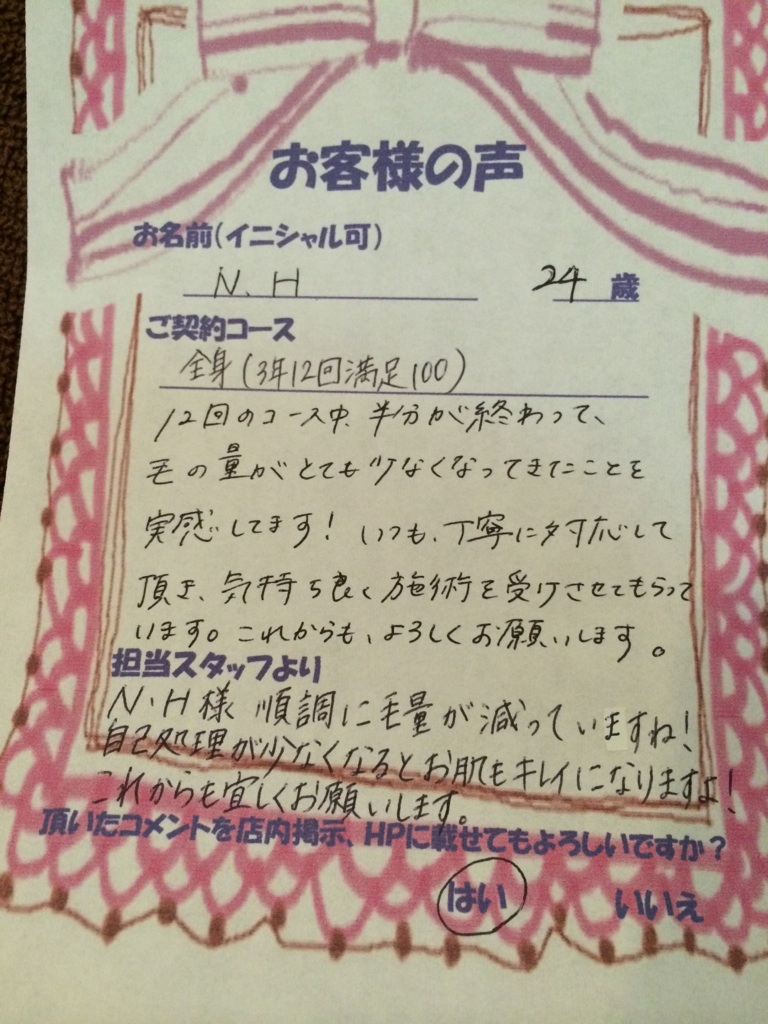 お客様の声
お名前(イニシャル可)
N.H 24 歳
ご契約コース
全身(3年12回満足100)
12回のコース中、半分が終わって、
毛の量がとても少なくなってきたことを
実感してます！いつも、丁寧に対応して
頂き、気持ち良く施術を受けさせてもらって
います。これからも、よろしくお願いします。
担当スタッフより
N・H様 順調に毛量が減っていますね！
自己処理が少なくなるとお肌もキレイになりますよ！
これからも宜しくお願いします。
頂いたコメントを店内掲示、HPに載せてもよろしいですか？
はい いいえ